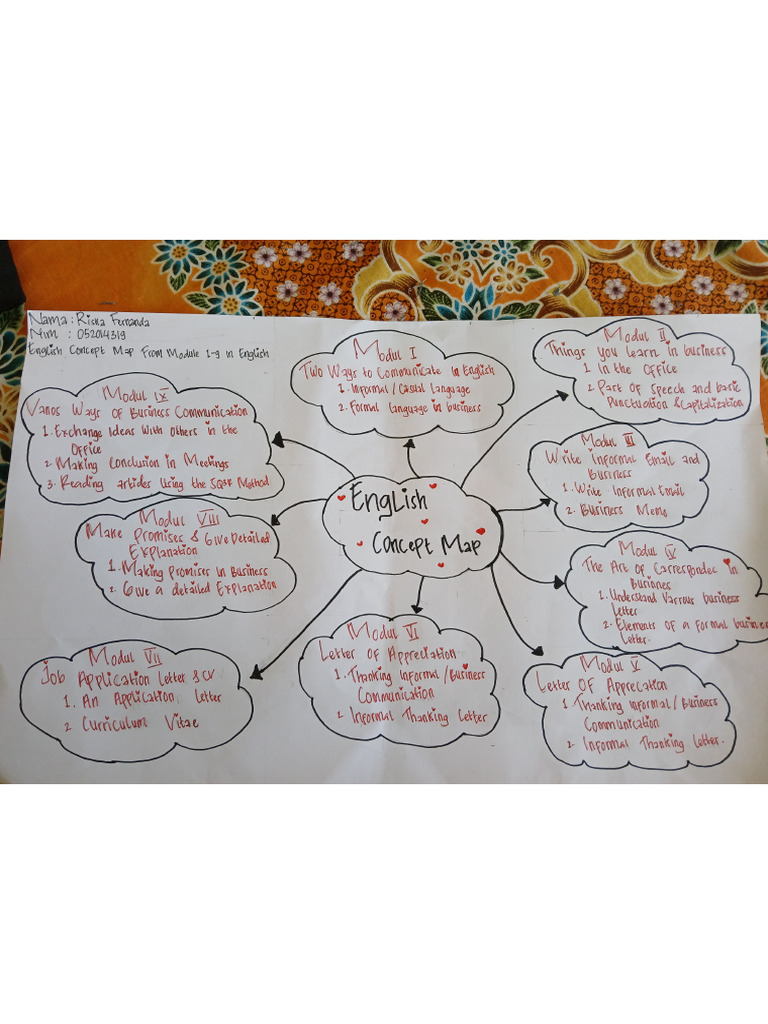 Nama : Riska Fernanda
Nim : 052014319
English Concept Map From Module 1-9 in English
English
Concept Map
Modul I
Two Ways to Communicate in English
1. Informal / Casual language
2. Formal language in business
Modul II
Things you learn in business
1. In the Office
2. Part of Speech and basic
Punctuation & Capitalization
Modul III
Write Informal Email and
Business
1. Write Informal Email
2. Business Memo
Modul IV
The Art of Correspondec in
Business
1. Understand Various business
letter
2. Elements of a formal business
letter.
Modul V
Letter OF Apprecation
1. Thanking Informal / Business
Communication
2 Informal Thanking Letter.
Modul VI
Letter of Appreciation
1. Thanking Informal / Business
Communication
2 Informal Thanking Letter
Modul VII
Job Application Letter & CV
1. An Application Letter
2 Curriculum Vitae
Modul VIII
Make Promises & Give Detailed
Explanation
1. Making Promises in Business
2. Give a detailed Explanation
Modul IX
Varios Ways of Business Communication
1. Exchange Ideas With Others in the
Office
2. Making Conclusion in Meetings
3. Reading articles Using the Method